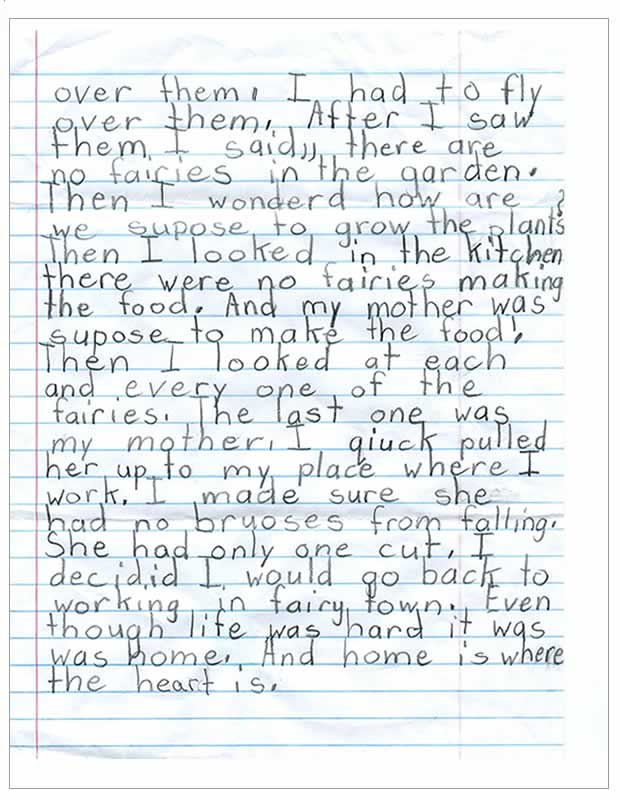 over them. I had to fly
over them. After I saw
them I said,, there are
no fairies in the garden.
Then I wonderd how are
we supose to grow the plants?
Then I looked in the kitchen
there were no fairies making
the food. And my mother was
supose to make the food!
Then I looked at each
and every one of the
fairies. The last one was
my mother. I qiuck pulled
her up to my place where I
work. I made sure she
had no bryoses from falling.
She had only one cut. I
decidid I would go back to
working in fairy town. Even
though life was hard it was
was home. And home is where
the heart is.